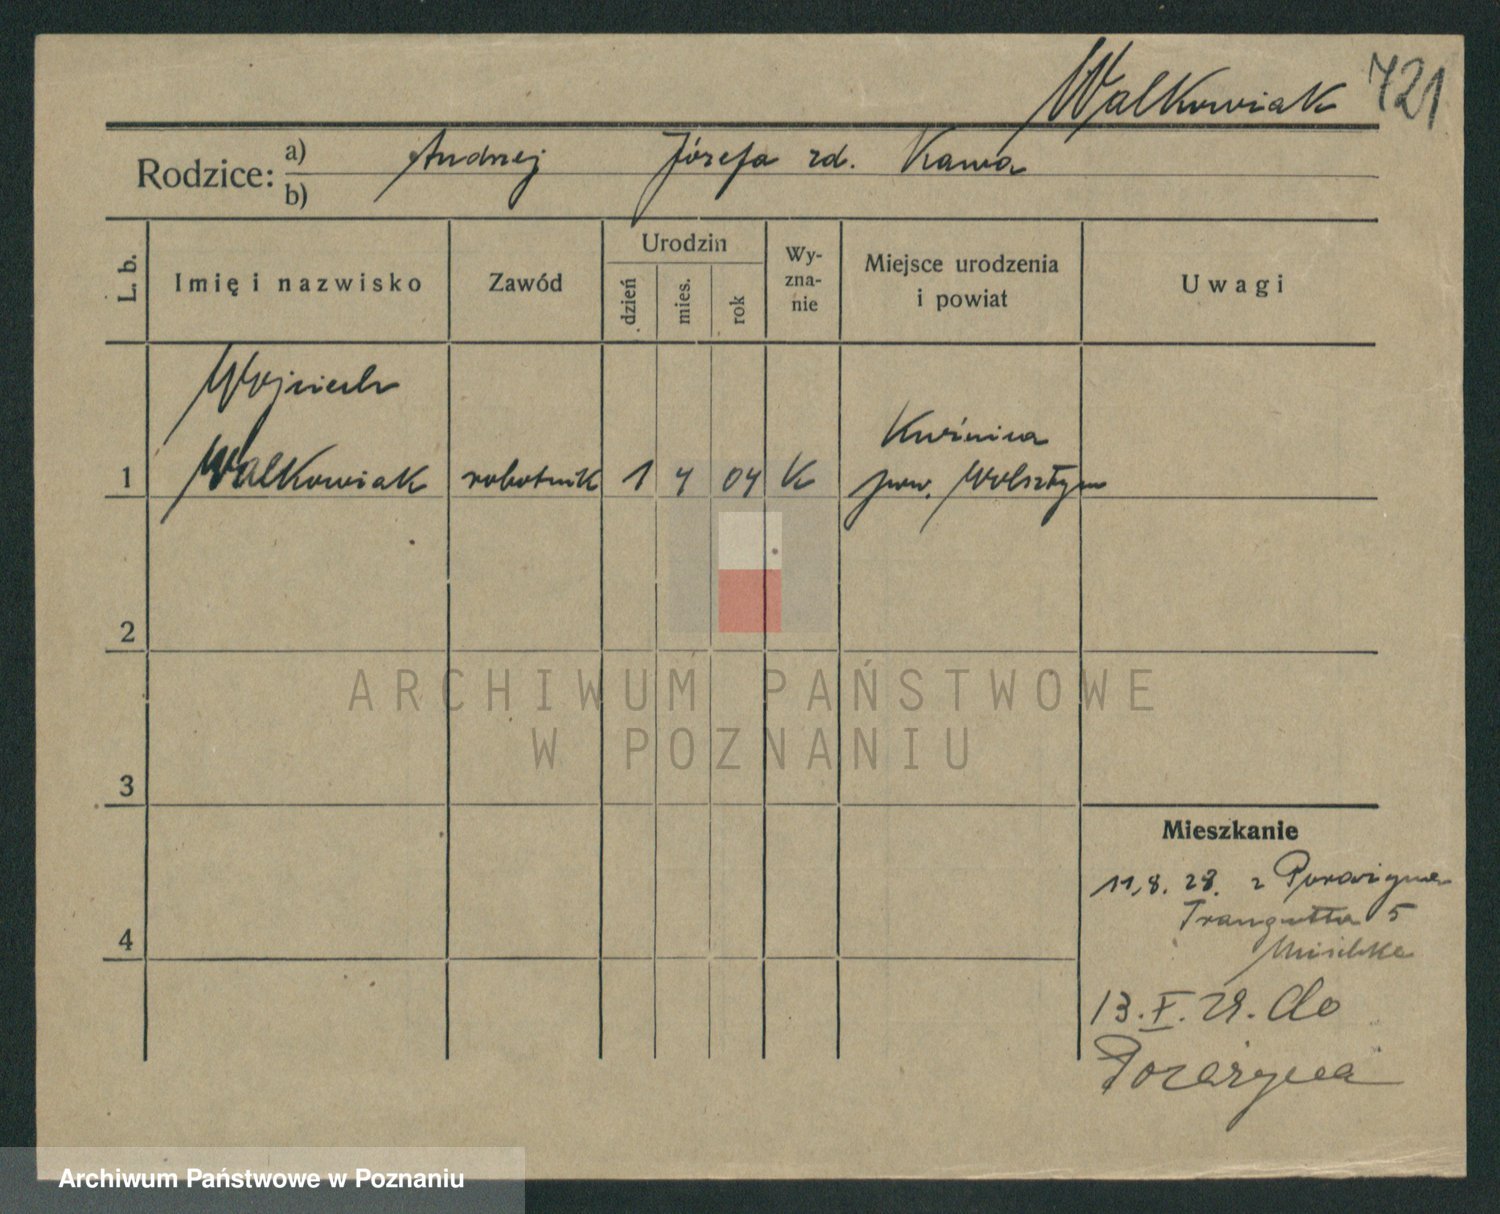 Walkowiak 721
Rodzice: a) Andrzej Józefa zd. Kawa
b)
L. b.
Imię i nazwisko
Zawód
Urodzin
dzień
mies.
rok
Wy-
zna-
nie
Miejsce urodzenia
i powiat
Uwagi
Wojciech
1 Walkowiak robotnik 1 4 04 K
pow. Wolsztyn
2
3
4
ARCHIWUM PAŃSTWOWE
W POZNANIU
Mieszkanie
11,8. 28. z Porażyna
Traugutta 5
13. X. 29. do
Porażyna
Archiwum Państwowe w Poznaniu